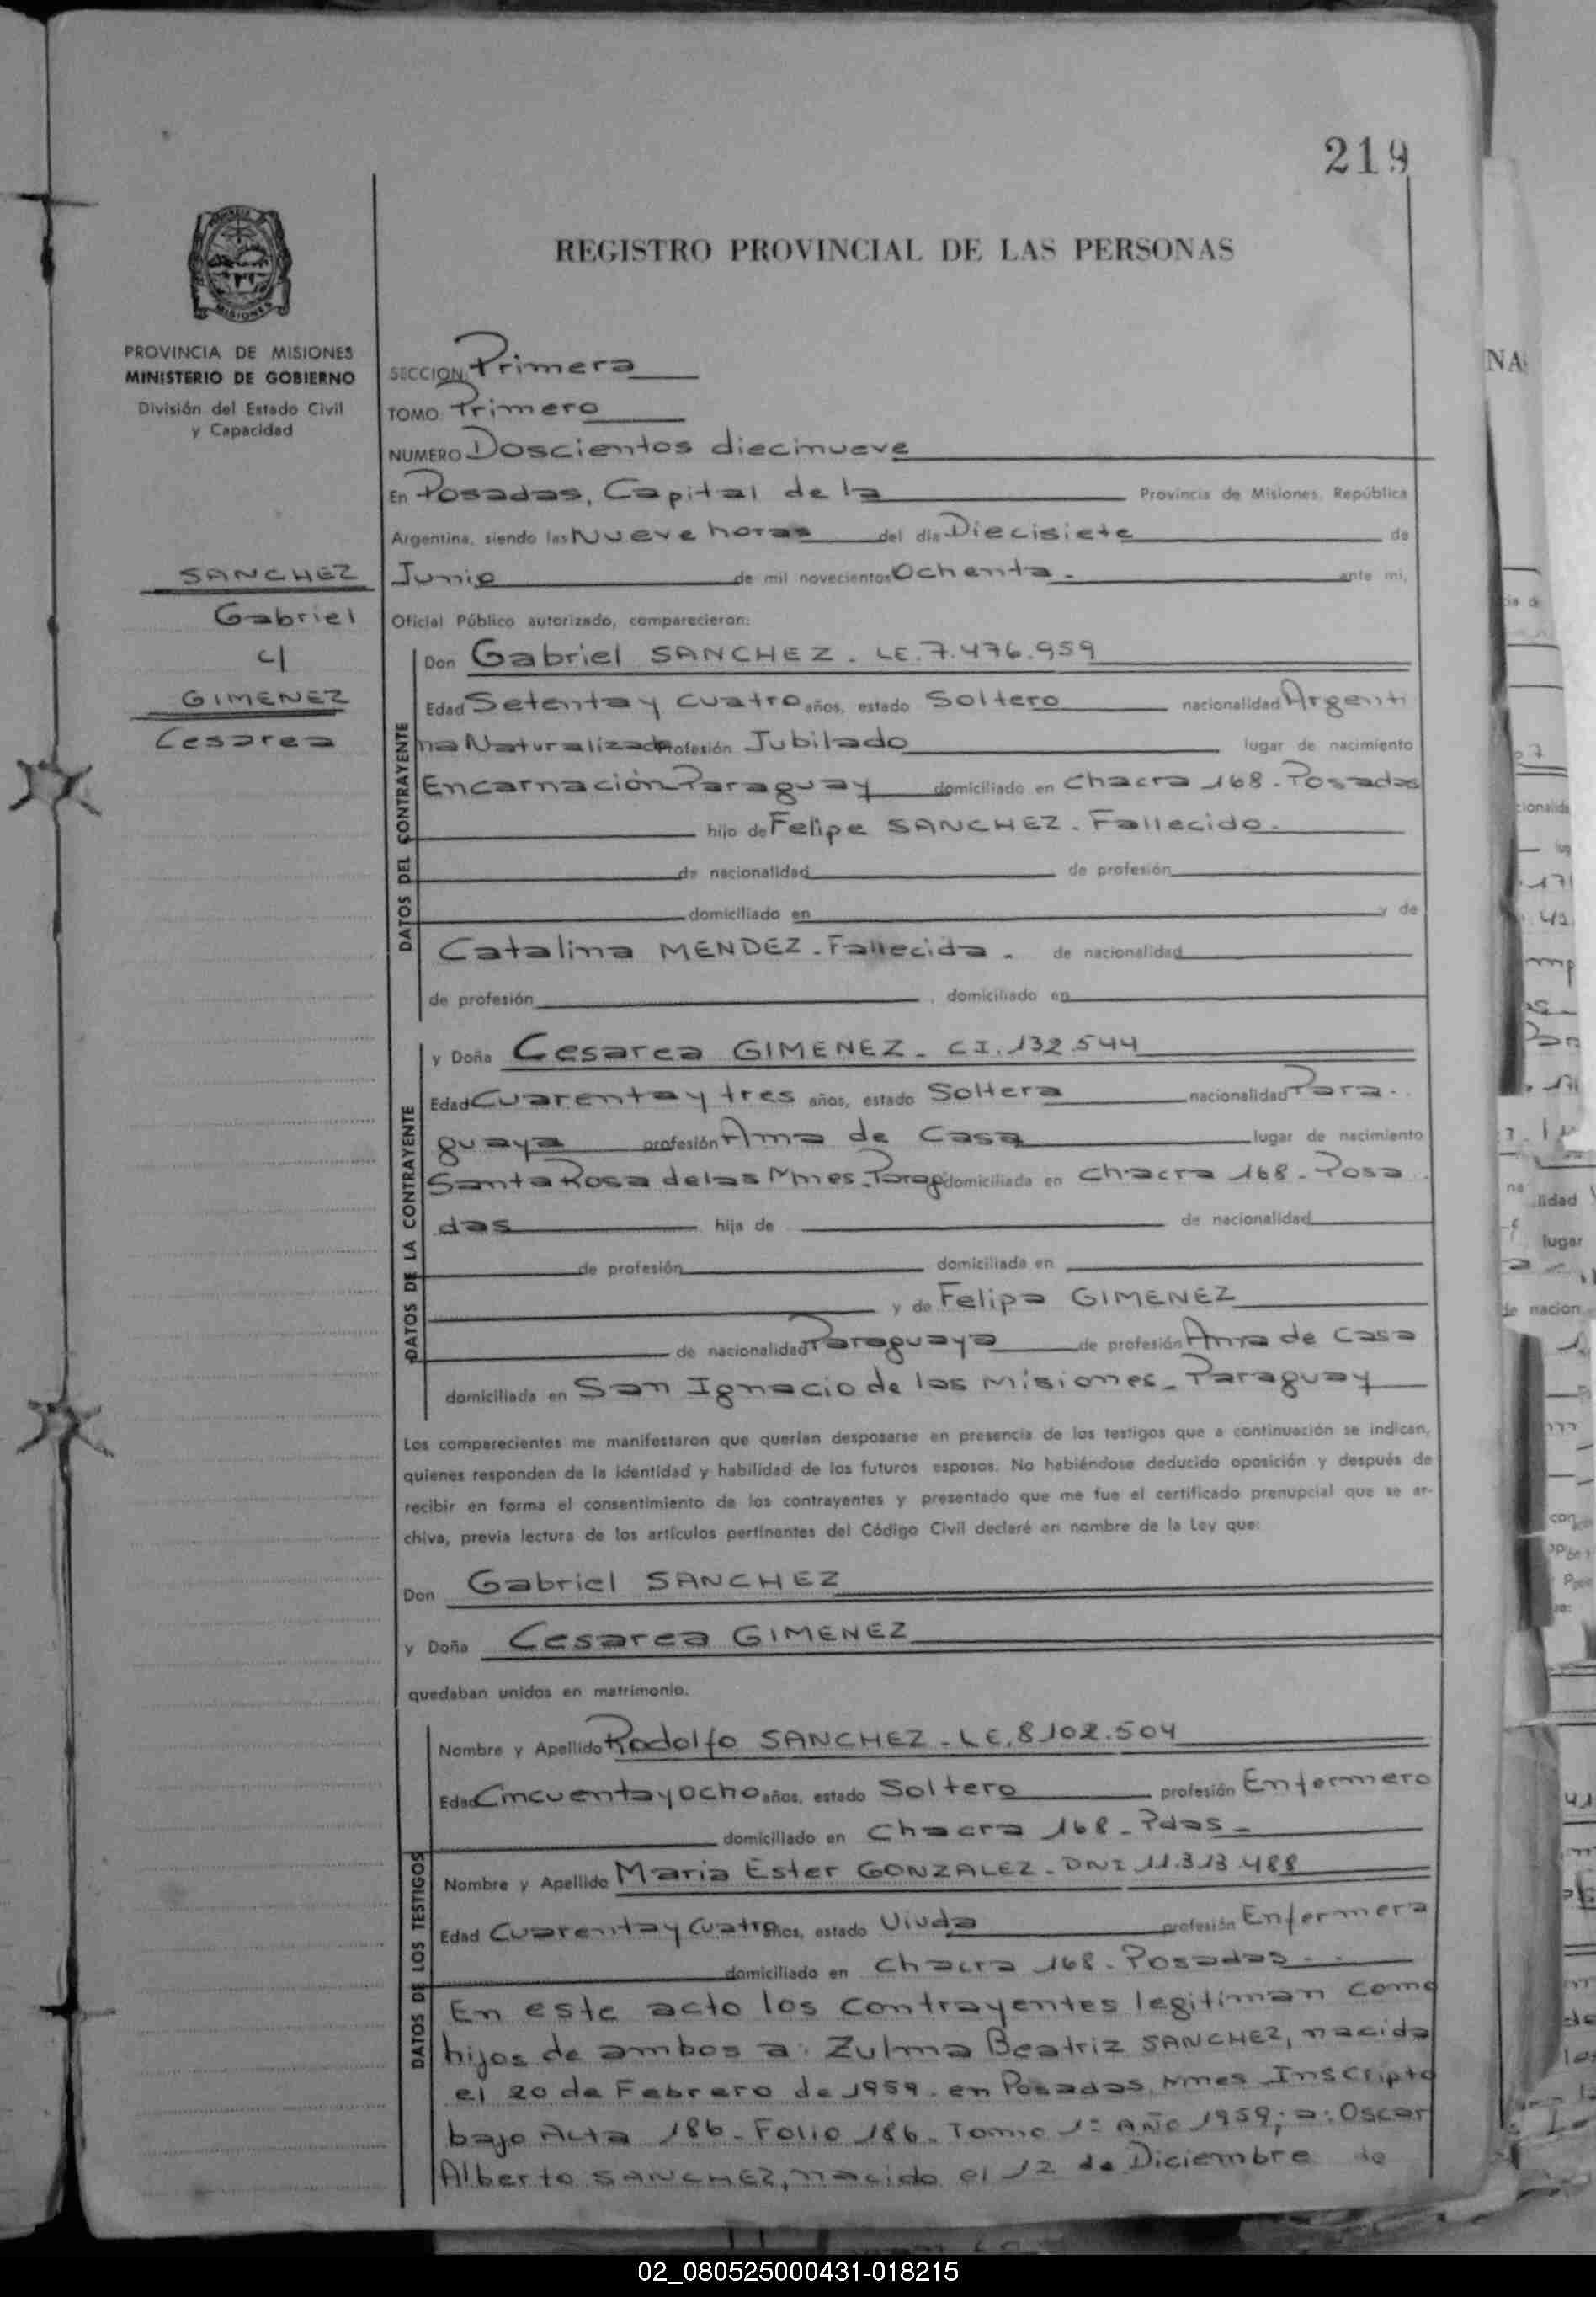 219
PROVINCIA DE MISIONES
MINISTERIO DE GOBIERNO
División del Estado Civil
y Capacidad
SANCHEZ
Gabriel
y
GIMENEZ
Cesarea
REGISTRO PROVINCIAL DE LAS PERSONAS
SECCION Primera
TOMO Primero
NUMERO Doscientos diecinueve
En Posadas, Capital de la Provincia de Misiones, República
Argentina, siendo las Nueve horas del día Diecisiete de
Junio de mil novecientos Ochenta. ante mi,
Oficial Público autorizado, comparecieron:
DATOS DEL CONTRAYENTE
Don Gabriel SANCHEZ. LE. 7.476.959
Edad Setenta y cuatro años, estado Soltero nacionalidad Argenti
na Naturalizado profesión Jubilado lugar de nacimiento
Encarnación Paraguay domiciliado en Chacra 168. Posadas
hijo de Felipe SANCHEZ. Fallecido.
de nacionalidad de profesión
domiciliado en y de
Catalina MENDEZ. Fallecida. de nacionalidad
de profesión , domiciliado en
DATOS DE LA CONTRAYENTE
y Doña Cesarea GIMENEZ. CI. 132.544
Edad Cuarenta y tres años, estado Soltera nacionalidad Para.
guaya profesión Ama de Casa lugar de nacimiento
Santa Rosa de las Mnes. Parag domiciliada en Chacra 168. Posa
das hija de de nacionalidad
de profesión domiciliada en
y de Felipa GIMENEZ
de nacionalidad Paraguaya de profesión Ama de Casa
domiciliada en San Ignacio de las Misiones. Paraguay
Los comparecientes me manifestaron que querían desposarse en presencia de los testigos que a continuación se indican,
quienes responden de la identidad y habilidad de los futuros esposos. No habiéndose deducido oposición y después de
recibir en forma el consentimiento de los contrayentes y presentado que me fue el certificado prenupcial que se ar-
chiva, previa lectura de los artículos pertinentes del Código Civil declaré en nombre de la Ley que:
Don Gabriel SANCHEZ
y Doña Cesarea GIMENEZ
quedaban unidos en matrimonio.
DATOS DE LOS TESTIGOS
Nombre y Apellido Rodolfo SANCHEZ. LE. 8.102.504
Edad Cincuenta y ocho años, estado Soltero profesión Enfermero
domiciliado en Chacra 168. Pdas.
Nombre y Apellido Maria Ester GONZALEZ. DNI 11.313.488
Edad Cuarenta y Cuatro años, estado Viuda profesión Enfermera
domiciliado en Chacra 168. Posadas.
En este acto los contrayentes legitiman como
hijos de ambos a: Zulma Beatriz SANCHEZ, nacida
el 20 de Febrero de 1959. en Posadas, Mnes Inscripto
bajo Acta 186. Folio 186. Tomo 1º Año 1959; a: Oscar
Alberto SANCHEZ, nacido el 12 de Diciembre de
02_080525000431-018215